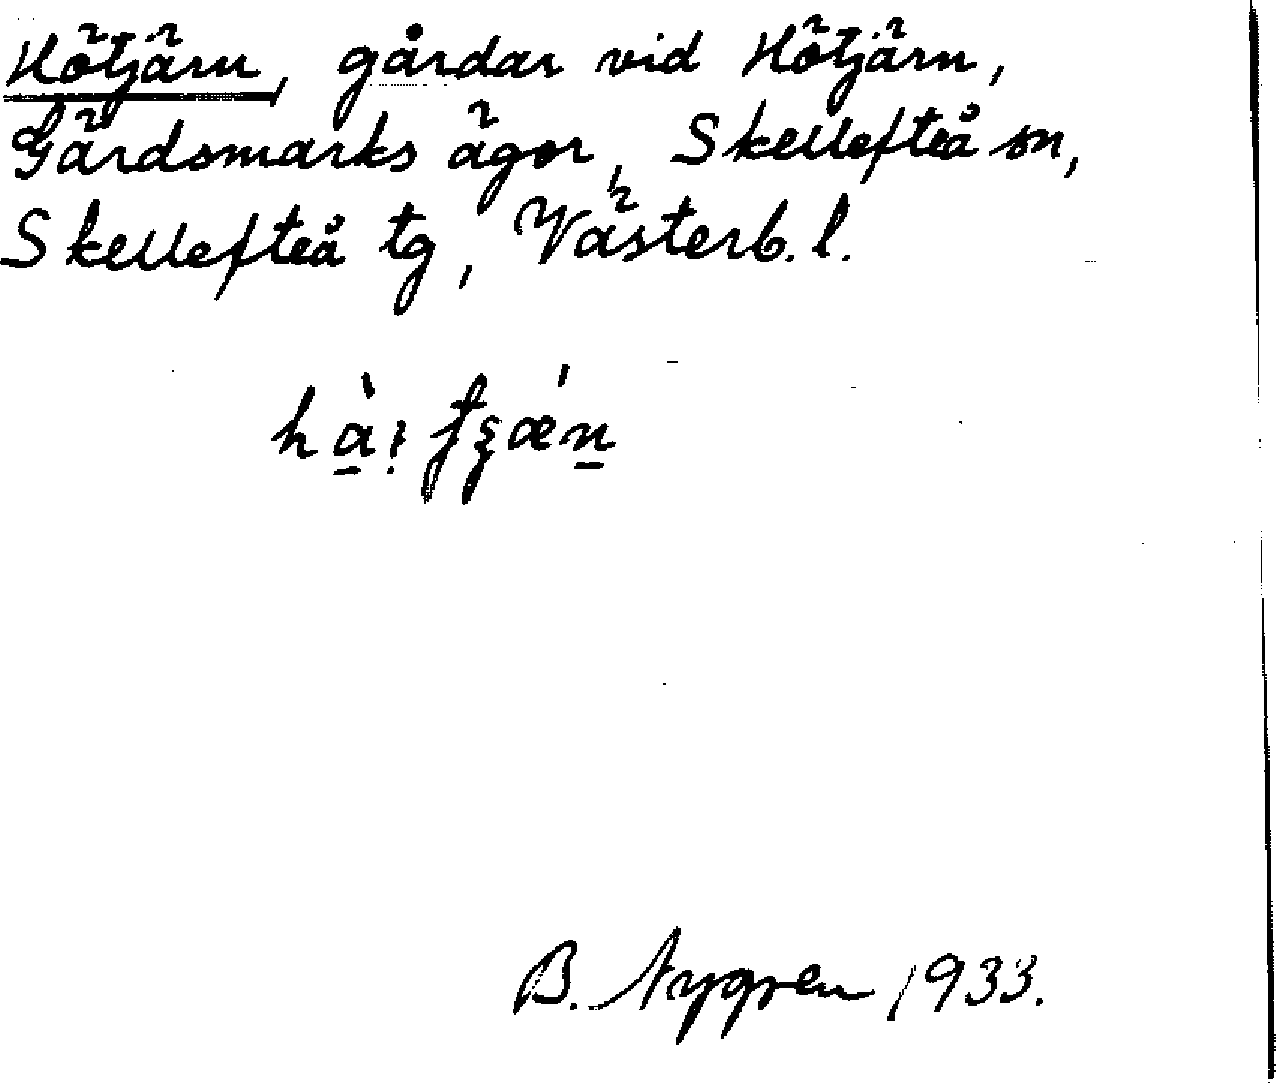 Hötjärn, gårdar vid Hötjärn,
Gärdsmarks ägor, Skellefteå sn,
Skellefteå tg, Västerb. l.
B. Nygren 1933.